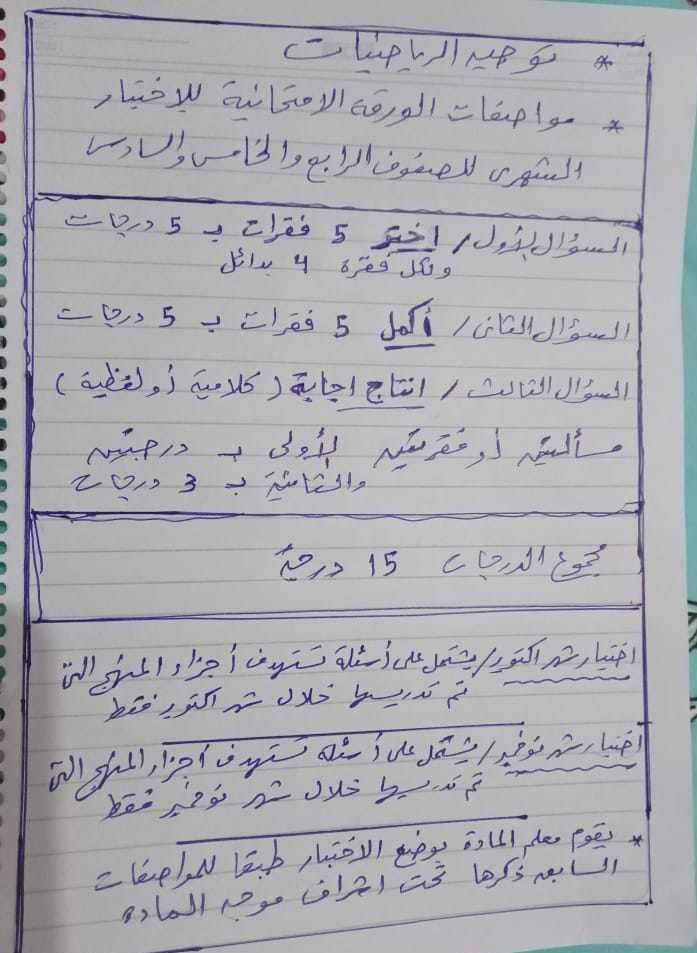 * توجيه الرياضيات
* مواصفات الورقة الامتحانية للإختبار
الشهرى للصفوف الرابع والخامس والسادس
السؤال الأول / اختر 5 فقرات بـ 5 درجات
ولكل فقرة 4 بدائل
السؤال الثانى / أكمل 5 فقرات بـ 5 درجات
السؤال الثالث / انتاج إجابة (كلامية أو لفظية)
مسألتين أو فقرتين الأولى بـ درجتين
والثانية بـ 3 درجات
مجموع الدرجات 15 درجة
اختبار شهر اكتوبر / يشتمل على أسئلة تستهدف أجزاء المنهج التى
تم تدريسها خلال شهر اكتوبر فقط
اختبار شهر نوفمبر / يشتمل على أسئله تستهدف أجزاء المنهج التى
تم تدريسها خلال شهر نوفمبر فقط
* يقوم معلم المادة بوضع الاختبار طبقا للمواصفات
السابقه ذكرها تحت اشراف موجه الماده